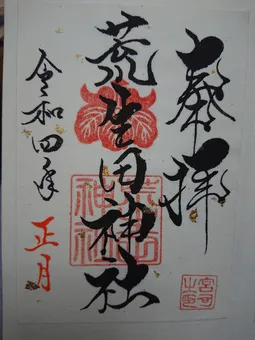 奉拝
荒生田神社
令和四年
正月
宮司之印